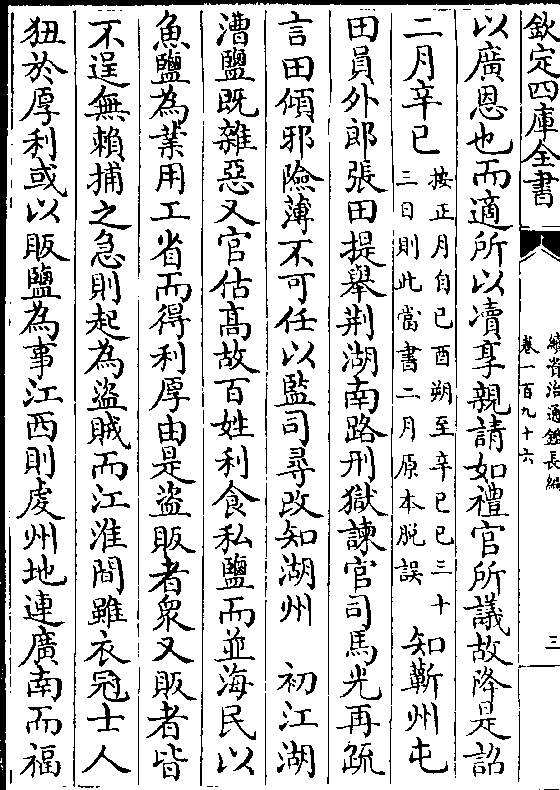 欽定四庫全書
續資治通鑑長編
卷一百九十六
三
以廣恩也而適所以瀆享親請如禮官所議故降是詔
二月辛巳
按正月自己酉朔至辛巳已三十
三日則此當書二月原本脱誤
知蘄州屯
田員外郎張田提舉荆湖南路刑獄諫官司馬光再疏
言田傾邪險薄不可任以監司尋改知湖州　初江湖
漕鹽既雜惡又官估髙故百姓利食私鹽而並海民以
魚鹽為業用工省而得利厚由是盜販者衆又販者皆
不逞無賴捕之急則起為盜賊而江淮間雖衣冠士人
狃於厚利或以販鹽為事江西則虔州地連廣南而福